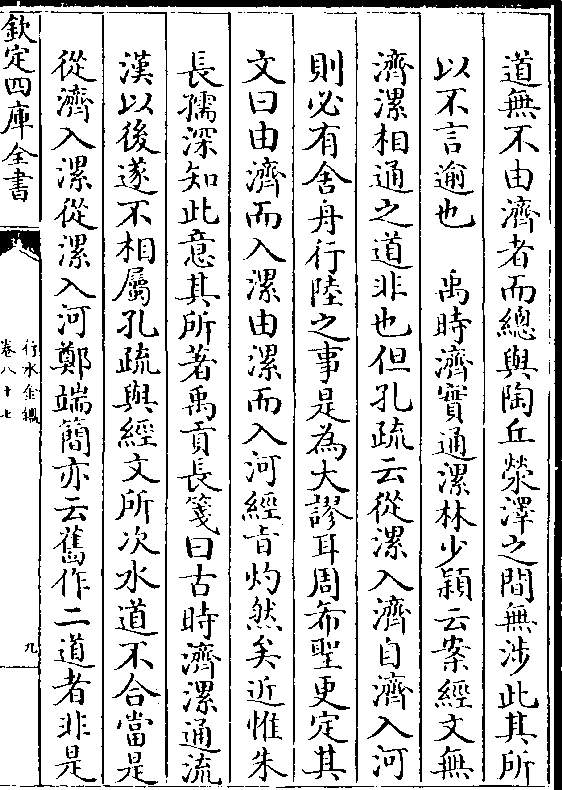 道無不由濟者而總與陶丘滎澤之間無涉此其所
以不言逾也　禹時濟實通漯林少穎云案經文無
濟漯相通之道非也但孔疏云從漯入濟自濟入河
則必有舍舟行陸之事是為大謬耳周希聖更定其
文曰由濟而入漯由漯而入河經旨灼然矣近惟朱
長孺深知此意其所著禹貢長箋曰古時濟漯通流
漢以後遂不相屬孔疏與經文所次水道不合當是
從濟入漯從漯入河鄭端簡亦云舊作二道者非是
欽定四庫全書
行水金鑑
卷八十七
九